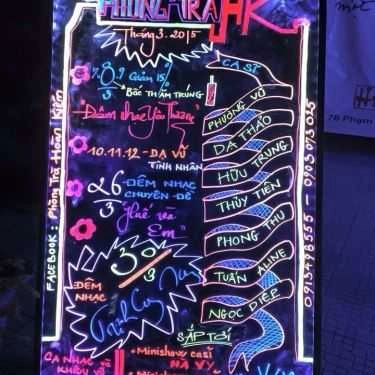 PHÒNG TRÀ HK
Tháng 3.2015
8/3 Giảm 15%
Bốc THĂM TRÚNG
"Đêm nhạc yêu Thương"
10.11.12 - DẠ VŨ
TÌNH NHÂN
26/3 ĐÊM NHẠC
CHUYÊN ĐỀ
"Huế và
Em"
30/3
ĐÊM
NHẠC
CA SĨ
PHƯƠNG VŨ
DẠ THẢO
HỮU TRUNG
THỦY TIÊN
PHONG THU
TUẤN ALINE
NGỌC DIỆP
SẮP TỚI
CA NHẠC
KHIÊU VŨ
• Minishow ca sĩ
HẠ VY
• Minishow
FACEBOOK : Phòng Trà Hoàn Kiếm
0913498555 - 0903073025
76 Phạm